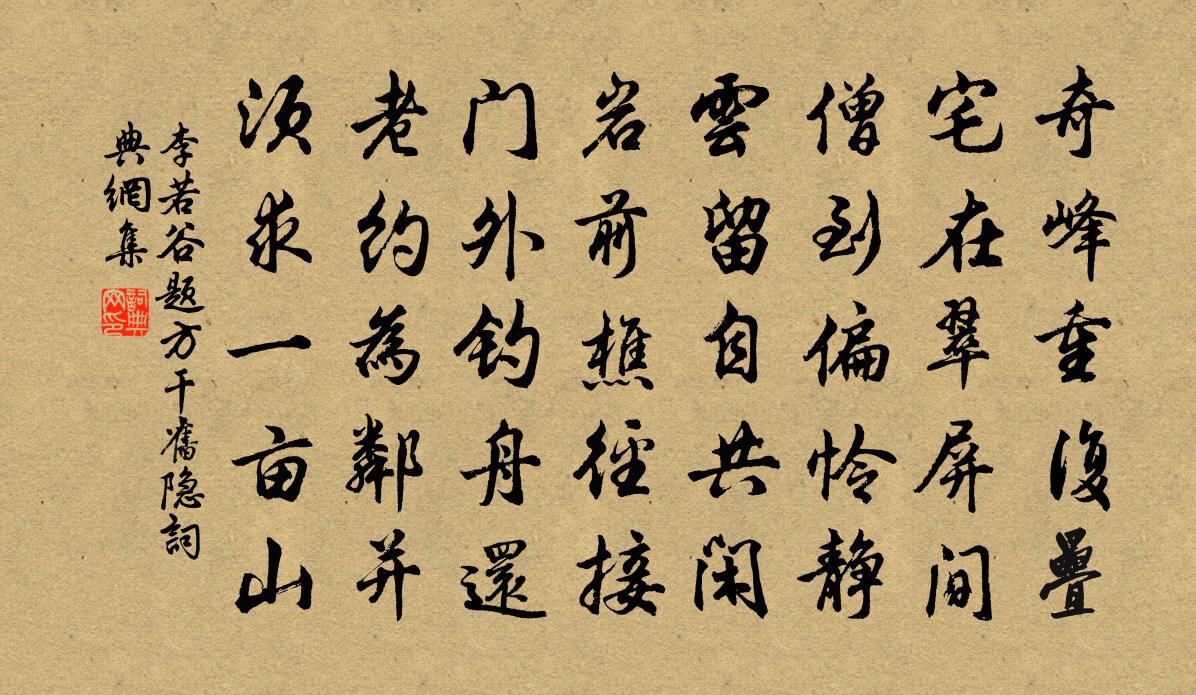 奇峰重復疊
宅在翠屏間
僧到偏怜静
雲留自共閑
岩前樵徑接
门外釣舟還
老約為鄰并
须求一亩山
李若谷题方干舊隐詞
典網集
詞典
网印